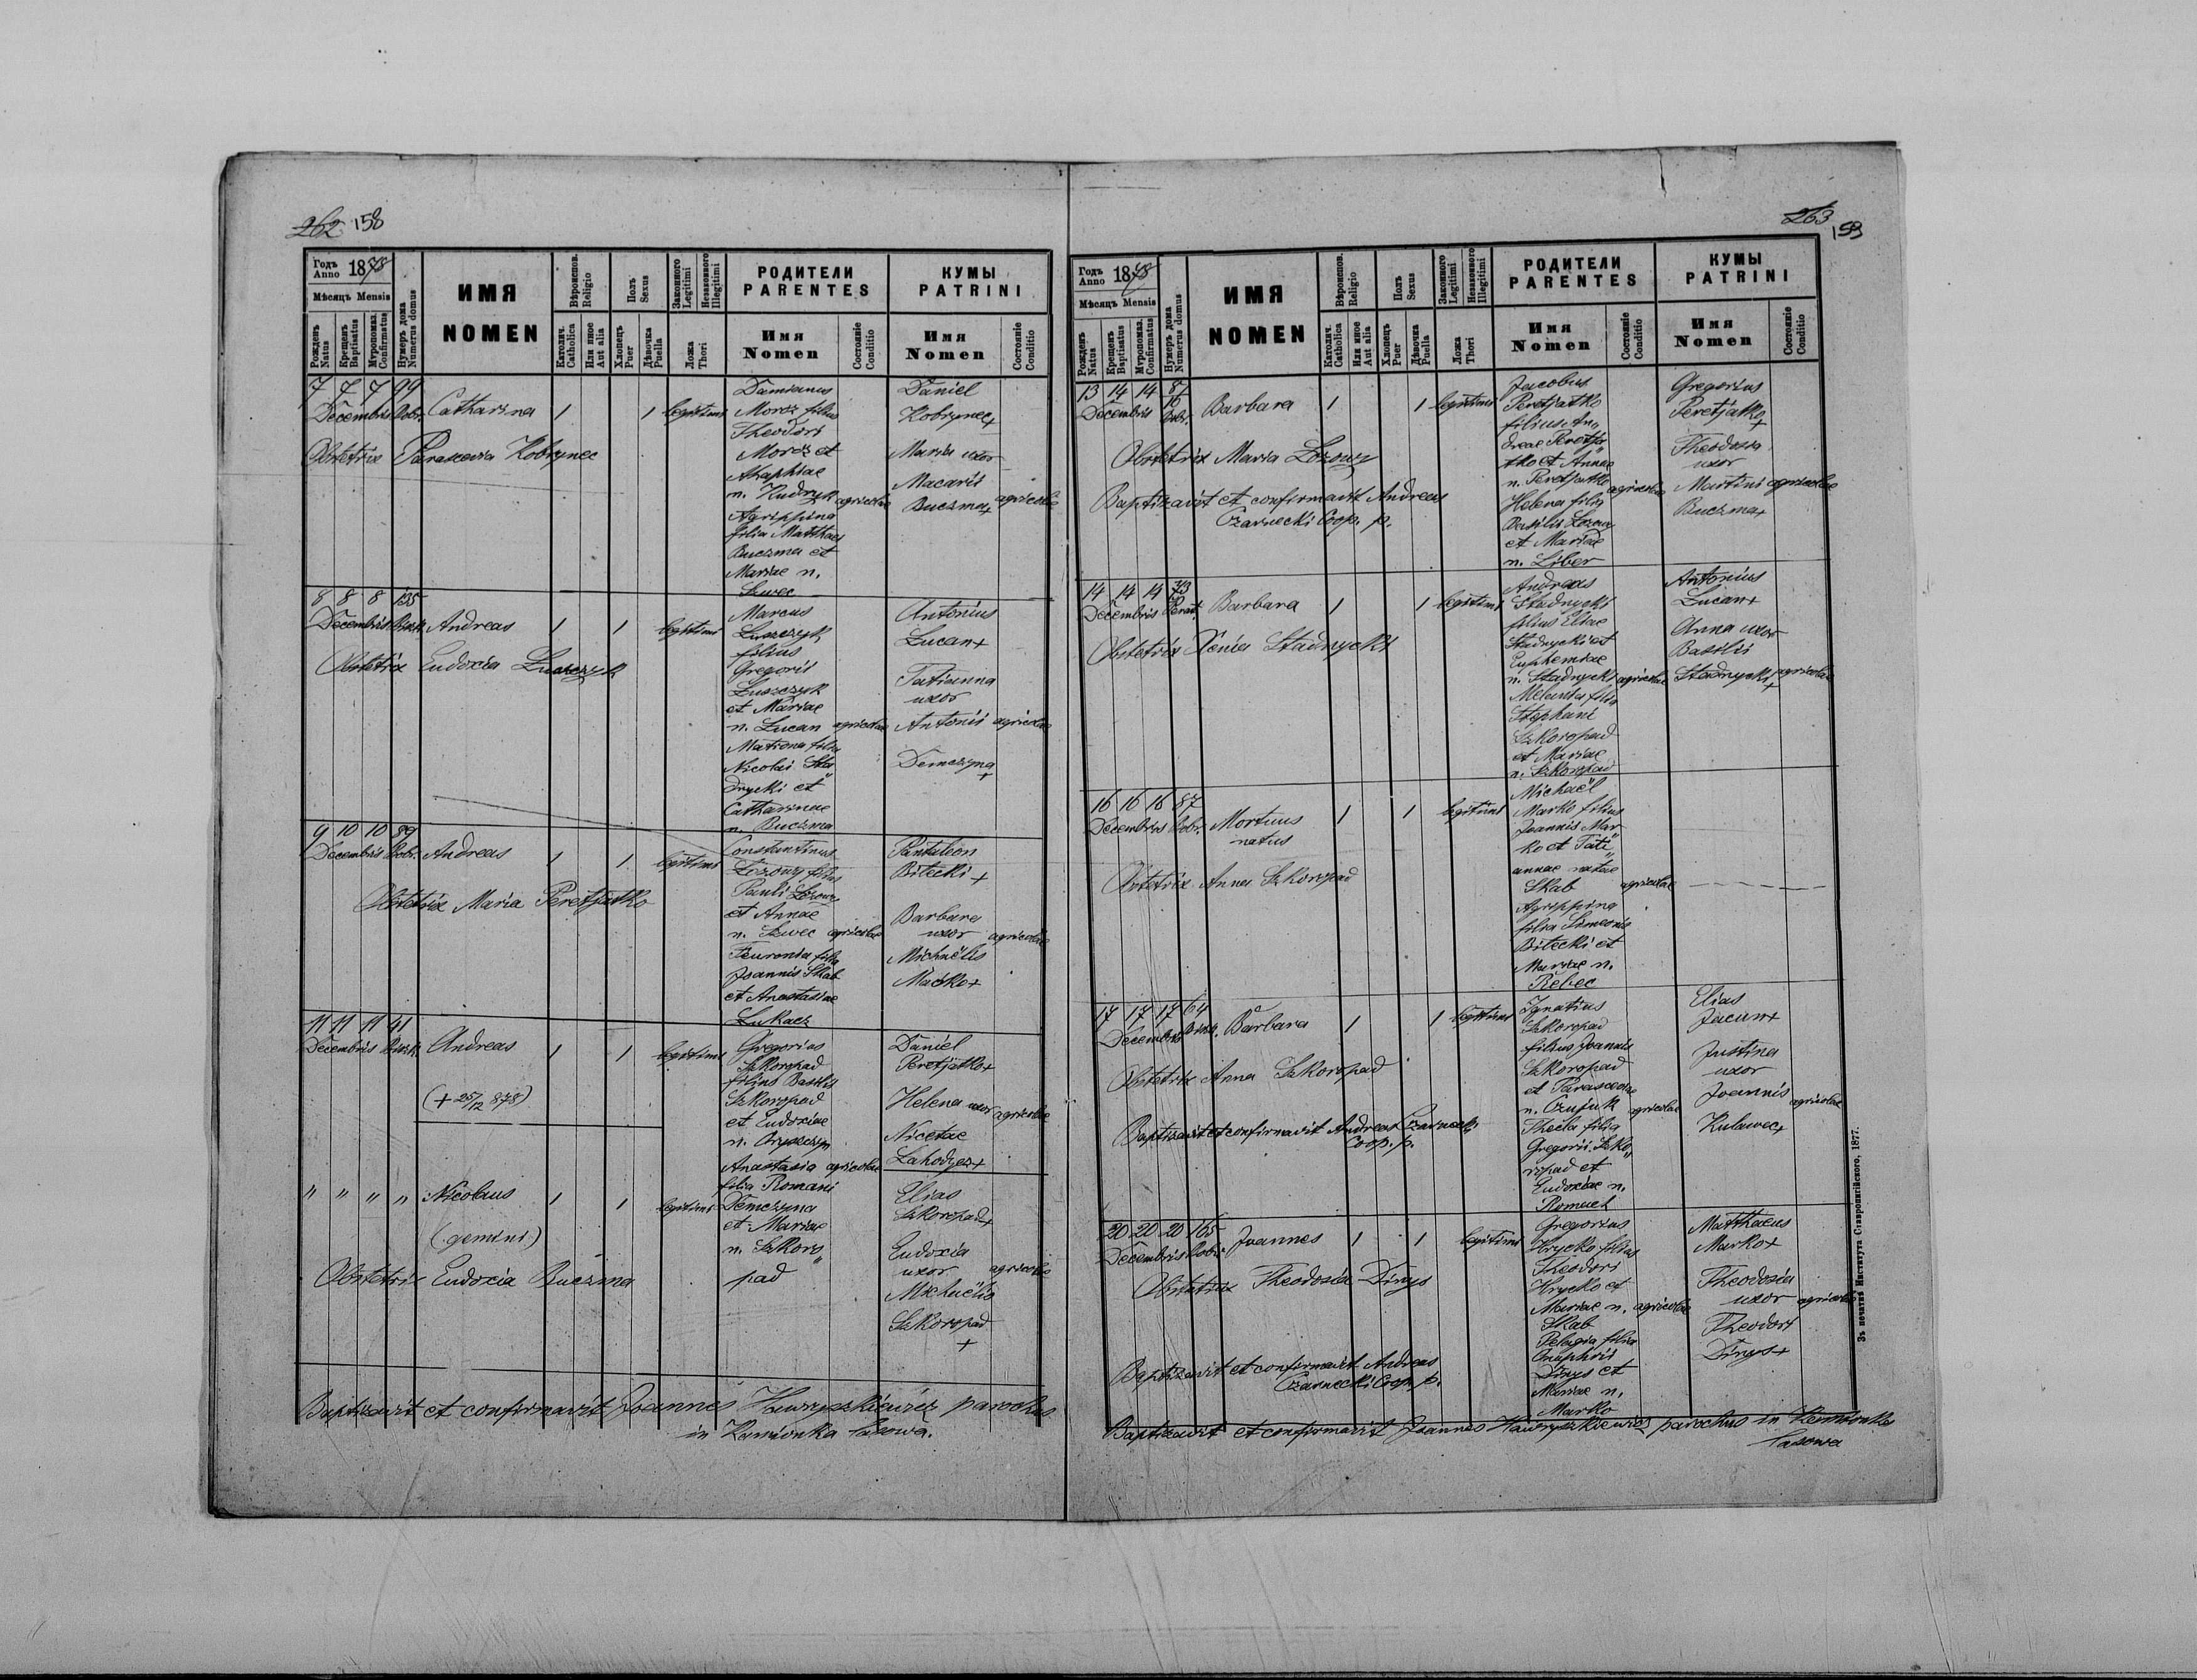 262 158
Годъ Anno 1878
Мѣсяцъ Mensis
Рожденъ Natus
Крещенъ Baptisatus
Мѵропомаз. Confirmatus
Нумеръ дома Numerus domus
ИМЯ
NOMEN
Вѣроиспов. Religio
Католич. Catholica
Или иное Aut alia
Полъ Sexus
Хлопецъ Puer
Дѣвочка Puella
Законного Legitimi
Незаконного Illegitimi
Ложа Thori
РОДИТЕЛИ
PARENTES
Имя
Nomen
Состояніе Conditio
КУМЫ
PATRINI
Имя
Nomen
Состояніе Conditio
7 7 7 99
Decembris Dobr. Catharina 1 1 legitimi
Obstetrix Parascevia Kobrynec
Damianus
Moroz filius
Theodori
Moroz et
Ahaphiae
n. Kudryk agricolae
Agrippina
filia Matthaei
Buczma et
Mariae n.
Szwec
Daniel
Kobrynec+
Maria uxor
Macarii
Buczma+ agricolae
8 8 8 135
Decembris Andreas 1 1 legitimi
Obstetrix Eudoxia Łuszczyk
Marcus
Łuszczyk
filius
Gregorii
Łuszczyk
et Mariae
n. Łucan agricolae
Matrona filia
Nicolai Sta„
dnycki et
Catharinae
n. Buczma
Antonius
Łucan+
Tatianna
uxor
Antonii agricolae
Demczyna
+
9 10 10 89
Decembris Dobr. Andreas 1 1 legitimi
Obstetrix Maria Peretjatko
Constantinus
Łozowy filius
Pauli Łozowy
et Annae
n. Szwec agricolae
Feuronia filia
Joannis Skab
et Anastasiae
Łukacz
Pantaleon
Bilecki+
Barbara
uxor agricolae
Michaëlis
Marko+
11 11 11 41
Decembris Andreas 1 1 legitimi
(+ 25/12 878)
Gregorius
Szkoropad
filius Basilii
Szkoropad
et Eudoxiae
n.
Anastasia agricolae
filia Romani
Demczyna
et Mariae
n. Szkoro„
pad
Daniel
Peretjatko+
Helena uxor agricolae
Nicetae
Lahodycz+
" " " " Nicolaus 1 1 legitimi
(gemini)
Obstetrix Eudoxia Buczma
Elias
Szkoropad+
Eudoxia
uxor agricolae
Michaëlis
Szkoropad
+
Baptizavit et confirmavit Joannes Hawryszkiewicz parochus
in Kamionka lasowa.
263
159
Годъ Anno 1878
Мѣсяцъ Mensis
Рожденъ Natus
Крещенъ Baptisatus
Мѵропомаз. Confirmatus
Нумеръ дома Numerus domus
ИМЯ
NOMEN
Вѣроиспов. Religio
Католич. Catholica
Или иное Aut alia
Полъ Sexus
Хлопецъ Puer
Дѣвочка Puella
Законного Legitimi
Незаконного Illegitimi
Ложа Thori
РОДИТЕЛИ
PARENTES
Имя
Nomen
Состояніе Conditio
КУМЫ
PATRINI
Имя
Nomen
Состояніе Conditio
13 14 14
Decembris Dobr. Barbara 1 1 legitimi
Obstetrix Maria Łozowy
Baptizavit et confirmavit Andreas
Czarnecki Coop. p.
Jacobus
Peretjatko
filius An„
dreae Peretja„
tko et Annae
n. Peretjatko agricolae
Helena filia
Basilii Łozowy
et Mariae
n. Liber
Gregorius
Peretjatko
+
Theodosia
uxor
Martini agricolae
Buczma+
14 14 14
Decembris Perat. Barbara 1 1 legitimi
Obstetrix Xenia Stadnycki
Andreas
Stadnycki
filius Eliae
Stadnycki et
Euphemiae
n. Stadnycki agricolae
Melania filia
Stephani
Szkoropad
et Mariae
n. Szkoropad
Antonius
Łucan+
Anna uxor
Basilii
Stadnycki agricolae
+
16 16 16 87
Decembris Dobr. Mortuus 1 1 legitimi
natus
Obstetrix Anna Szkoropad
Michaël
Marko filius
Joannis Mar„
ko et Tati„
annae natae
Skab agricolae
Agrippina
filia Simeonis
Bilecki et
Mariae n.
Rebec
17 17 17 64
Decembris Barbara 1 1 legitimi
Obstetrix Anna Szkoropad
Baptizavit et confirmavit Andreas Czarnecki
Coop. p.
Ignatius
Szkoropad
filius Joannis
Szkoropad
et Parasceviae
n. Czujuk agricolae
Thecla filia
Gregorii Szko„
ropad et
Eudoxiae n.
Romuch
Elias
Jacium+
Justina
uxor
Joannis agricolae
Kulawec+
20 20 20 165
Decembris Dobr. Joannes 1 1 legitimi
Obstetrix Theodosia Dinys
Baptizavit et confirmavit Andreas
Czarnecki Coop. p.
Gregorius
Hrycko filius
Theodori
Hrycko et
Mariae n. agricolae
Skab
Pelagia filia
Onuphrii
Dinys et
Mariae n.
Marko
Matthaeus
Marko+
Theodosia
uxor agricolae
Theodori
Dinys+
Baptizavit et confirmavit Joannes Hawryszkiewicz parochus in Kamionka
lasowa
Зъ печатнѣ Института Ставропигійского, 1877.